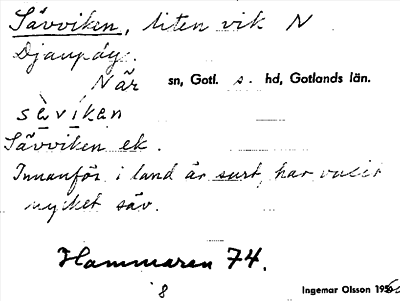 Sävviken, liten vik N
Djaupdy.
När sn, Gotl. s. hd, Gotlands län.
sèvikan
Sävviken ek.
Innanför i land är surt, har vulit
mycket säv.
Hammaren 74.
8 Ingemar Olsson 1950